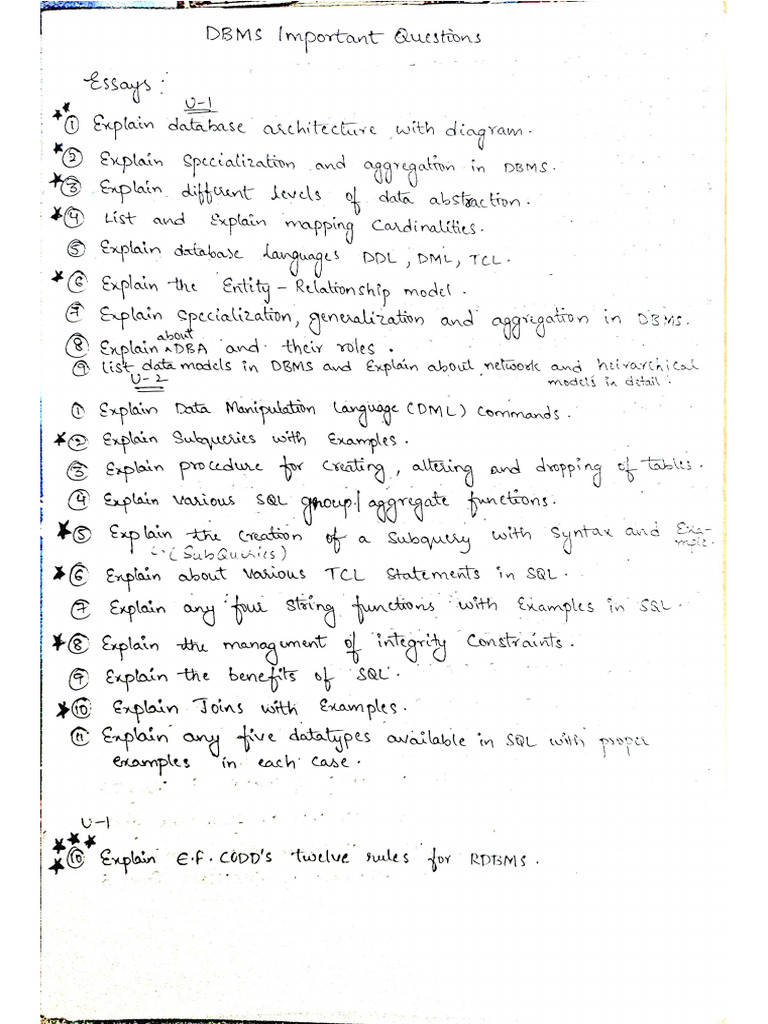 DBMS Important Questions
Essays :
U-1
① Explain database architecture with diagram.
② Explain Specialization and aggregation in DBMS.
③ Explain different levels of data abstraction.
④ List and Explain mapping Cardinalities.
⑤ Explain database languages DDL, DML, TCL.
⑥ Explain the Entity - Relationship model.
⑦ Explain Specialization, generalization and aggregation in DBMS.
⑧ Explain about DBA and their roles.
⑨ List data models in DBMS and Explain about network and heirarchical
models in detail :
U-2
① Explain Data Manipulation Language (DML) commands.
② Explain Subqueries with Examples.
③ Explain procedure for creating, altering and dropping of tables.
④ Explain various SQL group/aggregate functions.
⑤ Explain the creation of a Subquery with Syntax and Exa-
mple.
(SubQueries)
⑥ Explain about various TCL Statements in SQL.
⑦ Explain any four String functions with Examples in SQL.
⑧ Explain the management of integrity Constraints.
⑨ Explain the benefits of SQL.
⑩ Explain Joins with Examples.
⑪ Explain any five datatypes available in SQL with proper
examples in each case.
U-1
⑩ Explain E.F. CODD's twelve rules for RDBMS.